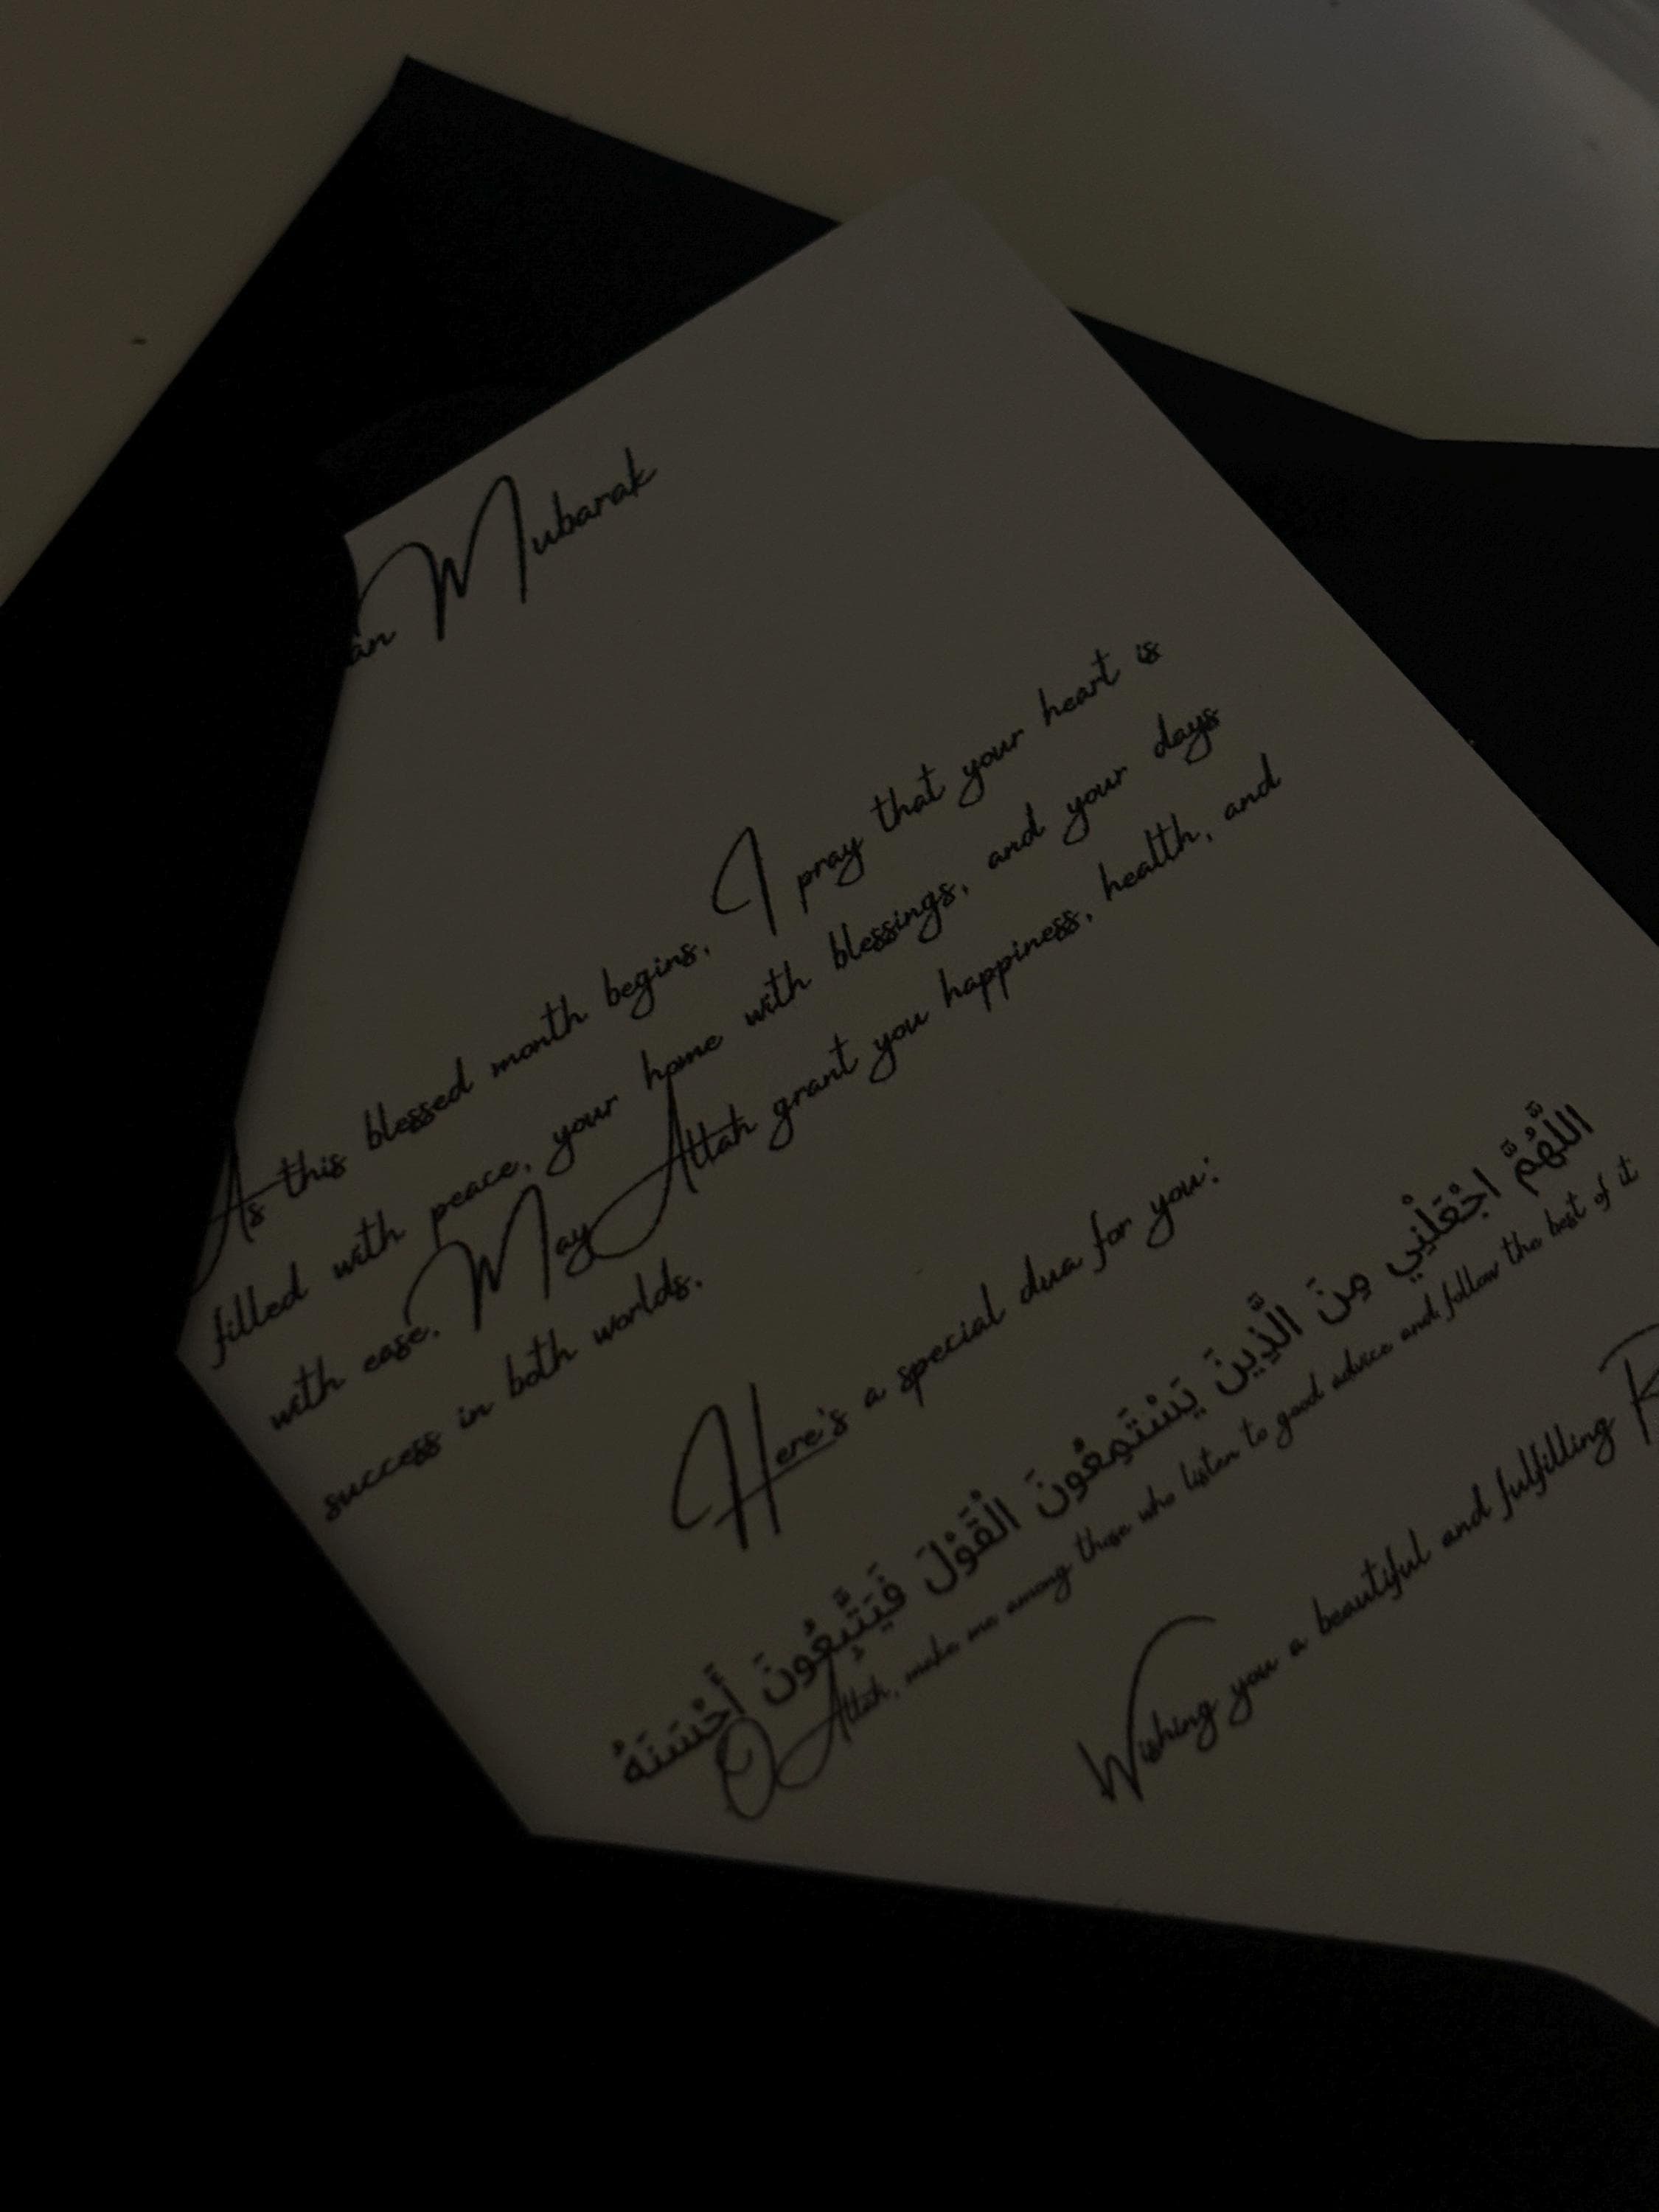 an Mubarak
As this blessed month begins, I pray that your heart is
filled with peace, your home with blessings, and your days
with ease. May Allah grant you happiness, health, and
success in both worlds.
Here's a special dua for you:
اللَّهُمَّ اجْعَلْنِي مِنَ الَّذِينَ يَسْتَمِعُونَ الْقَوْلَ فَيَتَّبِعُونَ أَحْسَنَهُ
O Allah, make me among those who listen to good advice and follow the best of it
Wishing you a beautiful and fulfilling R